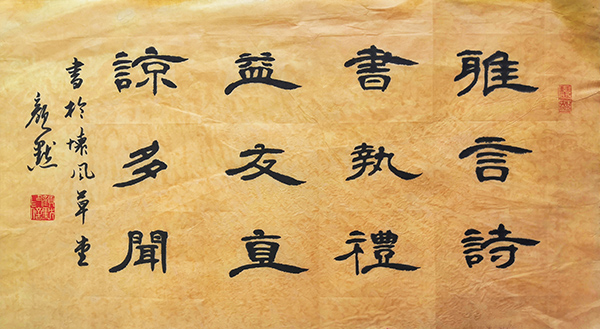 雅言詩
書執禮
益友直
諒多聞
書於懷風草堂
顏默